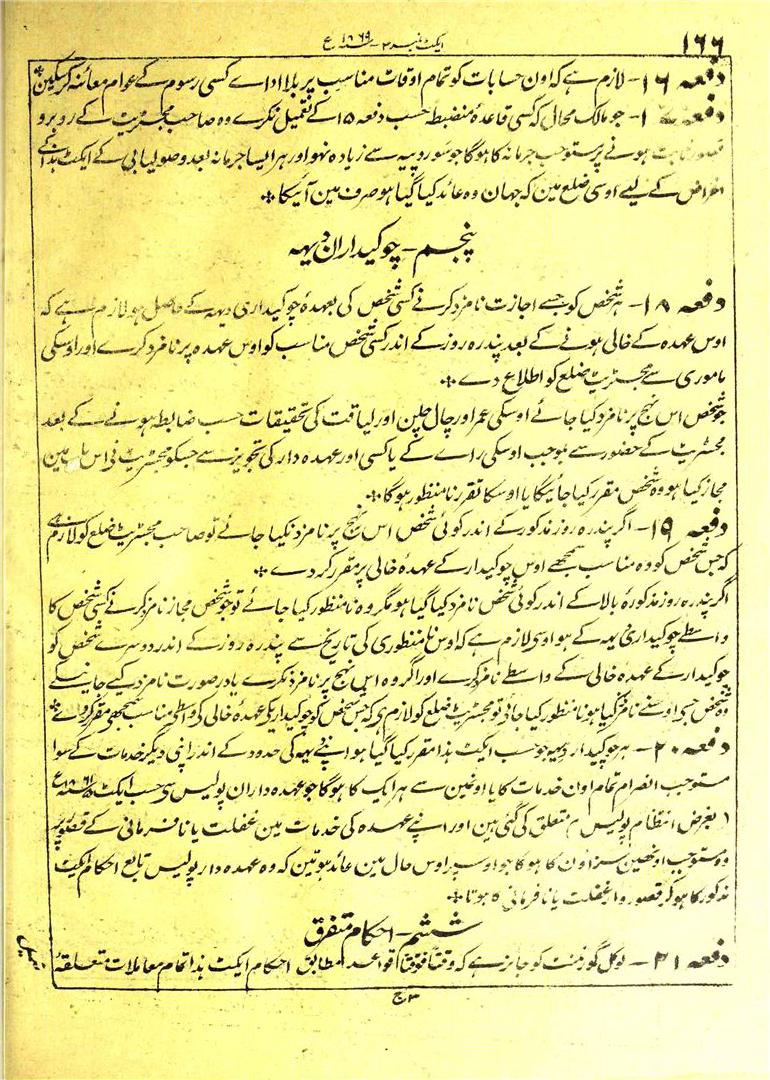 ۱۶۶
ایکٹ نمبر ۳ - ۱۸۶۹ع
دفعہ ۱۶ - لازم ہے کہ اون حسابات کو تمام اوقات مناسب پر بلا اداے کسی رسوم کے عوام معائنہ کر سکین *
دفعہ ۱۷ - جو مالک محال کہ کسی قاعدۂ منضبطہ حسب دفعہ ۱۵ کے تعمیل نکرے وہ صاحب مجسٹریٹ کے روبرو
قصور ثابت ہونے پر مستوجب جرمانہ کا ہوگا جو سو روپیہ سے زیادہ نہو اور ہر ایسا جرمانہ بعد وصولیابی کے ایکٹ ہذا کے
اغراض کے لیے اوسی ضلع مین کہ جہان وہ عائد کیا گیا ہو صرف مین آئیگا *
پنجم - چوکیداران دیہہ
دفعہ ۱۸ - ہر شخص کو جسے اجازت نامزد کرنے کسی شخص کی بعہدۂ چوکیداری دیہہ کے حاصل ہو لازم ہے کہ
اوس عہدہ کے خالی ہونے کے بعد پندرہ روز کے اندر کسی شخص مناسب کو اوس عہدہ پر نامزد کرے اور اوسکی
ماموری سے مجسٹریٹ ضلع کو اطلاع دے *
جو شخص اس نہج پر نامزد کیا جائے اوسکی عمر اور چال چلن اور لیاقت کی تحقیقات حسب ضابطہ ہونے کے بعد
مجسٹریٹ کے حضور سے بموجب اوسکی راے کے یا کسی اور عہدہ دار کی تجویز سے جسکو مجسٹریٹ نی اس باب مین
مجاز کیا ہو وہ شخص مقرر کیا جائیگا یا اوسکا تقرر نامنظور ہوگا *
دفعہ ۱۹ - اگر پندرہ روز مذکور کے اندر کوئی شخص اس نہج پر نامزد نکیا جائے تو صاحب مجسٹریٹ ضلع کو لازم ہے
کہ جس شخص کو وہ مناسب سمجھے اوس چوکیدار کے عہدۂ خالی پر مقرر کر دے *
اگر پندرہ روز مذکورہ بالا کے اندر کوئی شخص نامزد کیا گیا ہو مگر وہ نامنظور کیا جائے تو جو شخص مجاز نامزد کرنے کسی شخص کا
واسطے چوکیداری دیہہ کے ہو اوسی لازم ہے کہ اوس نامنظوری کی تاریخ سے پندرہ روز کے اندر دوسرے شخص کو
چوکیدار کے عہدۂ خالی کے واسطے نامزد کرے اور اگر وہ اس نہج پر نامزد نکرے یا در صورت نامزد کیے جانیکے
وہ شخص جسی اوسنے نامزد کیا ہو نامنظور کیا جائی تو مجسٹریٹ ضلع کو لازم ہی کہ جس شخص کو چوکیدار یکے عہدۂ خالی کی واسطی مناسب سمجھی مقرر کر دے *
دفعہ ۲۰ - ہر چوکیدار دیہہ جو حسب ایکٹ ہذا مقرر کیا گیا ہو اپنے دیہہ کی حدود کے اندر اپنی دیگر خدمات کے سوا
مستوجب انصرام تمام اون خدمات کا یا اونمین سے ہر ایک کا ہوگا جو عہدہ داران پولیس سے حسب ایکٹ ۵ سنہ ۱۸۶۱ع
بغرض انتظام پولیس متعلق کی گئی ہین اور اپنے عہدہ کی خدمات مین غفلت یا نافرمانی کے قصور پر
وہ مستوجب اونھین سزاؤن کا ہوگا جو اوسپر اوس حال مین عائد ہوتین کہ وہ عہدہ دار پولیس تابع احکام ایکٹ
مذکور کا ہو کر قصور وار غفلت یا نافرمانی کا ہوتا *
ششم - احکام متفرق
دفعہ ۲۱ - لوکل گورنمنٹ کو جائز ہے کہ وقتاً فوقتاً قواعد مطابق احکام ایکٹ ہذا تمام معاملات متعلقۂ
تعمیل
۳ ج